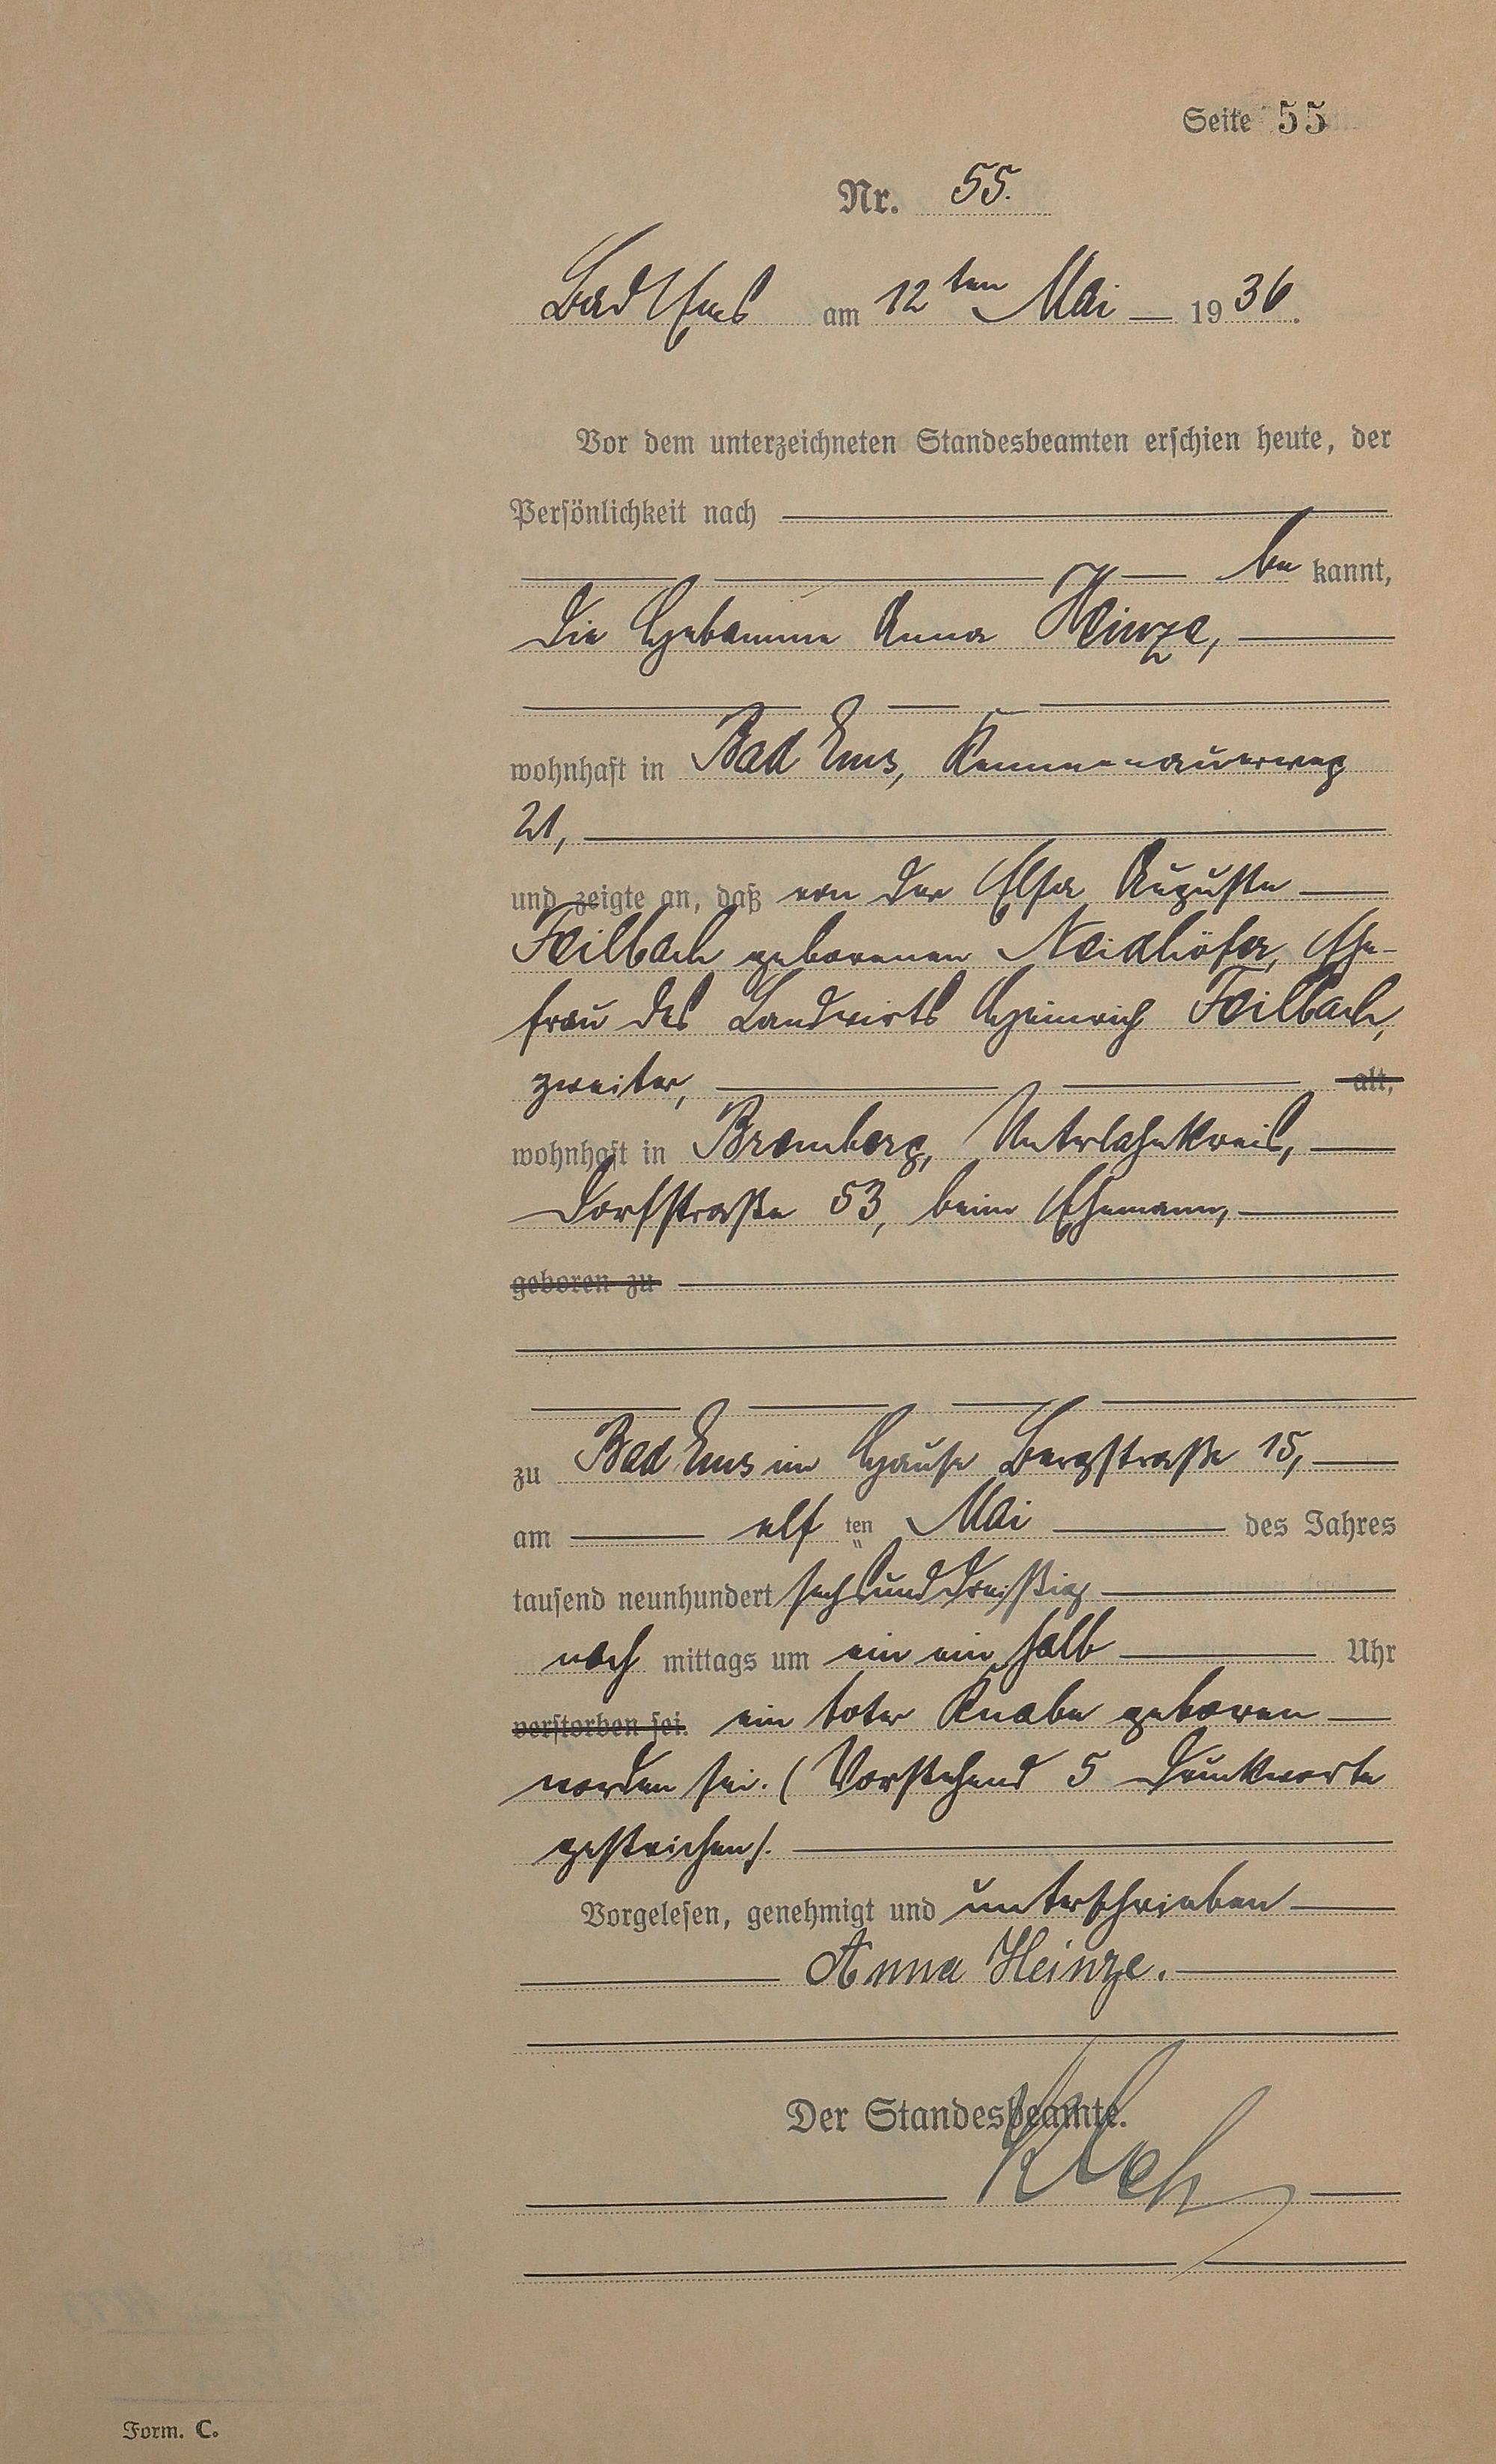 Seite 55
Nr. 55.
Bad Ems am 12ten Mai 1936.
Vor dem unterzeichneten Standesbeamten erschien heute, der
Persönlichkeit nach
be kannt,
die Hebamme Anna Heinze,
wohnhaft in Bad Ems, Kemmenauerweg
21,
und zeigte an, daß von der Elsa Auguste
Feilbach geborenen Neidhöfer, Ehe-
frau des Landwirts Heinrich Feilbach,
zweiter, alt,
wohnhaft in Bremberg, Unterlahnkreis,
Dorfstraße 53, beim Ehemann,
geboren zu
zu Bad Ems im Hause Bergstraße 15,
am elf ten Mai des Jahres
tausend neunhundert sechsunddreißig
nach mittags um ein ein halb Uhr
verstorben sei. ein toter Knabe geboren
worden sei. (Vorstehend 5 Druckworte
gestrichen).
Vorgelesen, genehmigt und unterschrieben
Anna Heinze.
Der Standesbeamte.
Form. C.